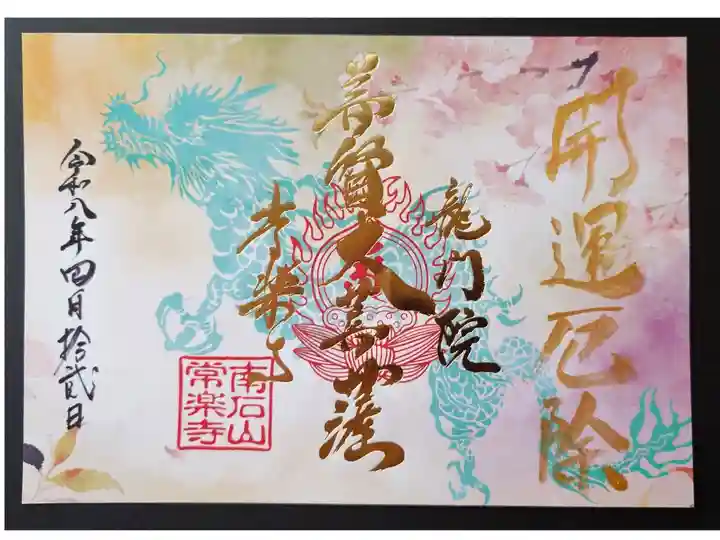 開運厄除
龍門院
普賢大菩薩
常楽寺
南石山
常楽寺
令和八年四月拾弐日